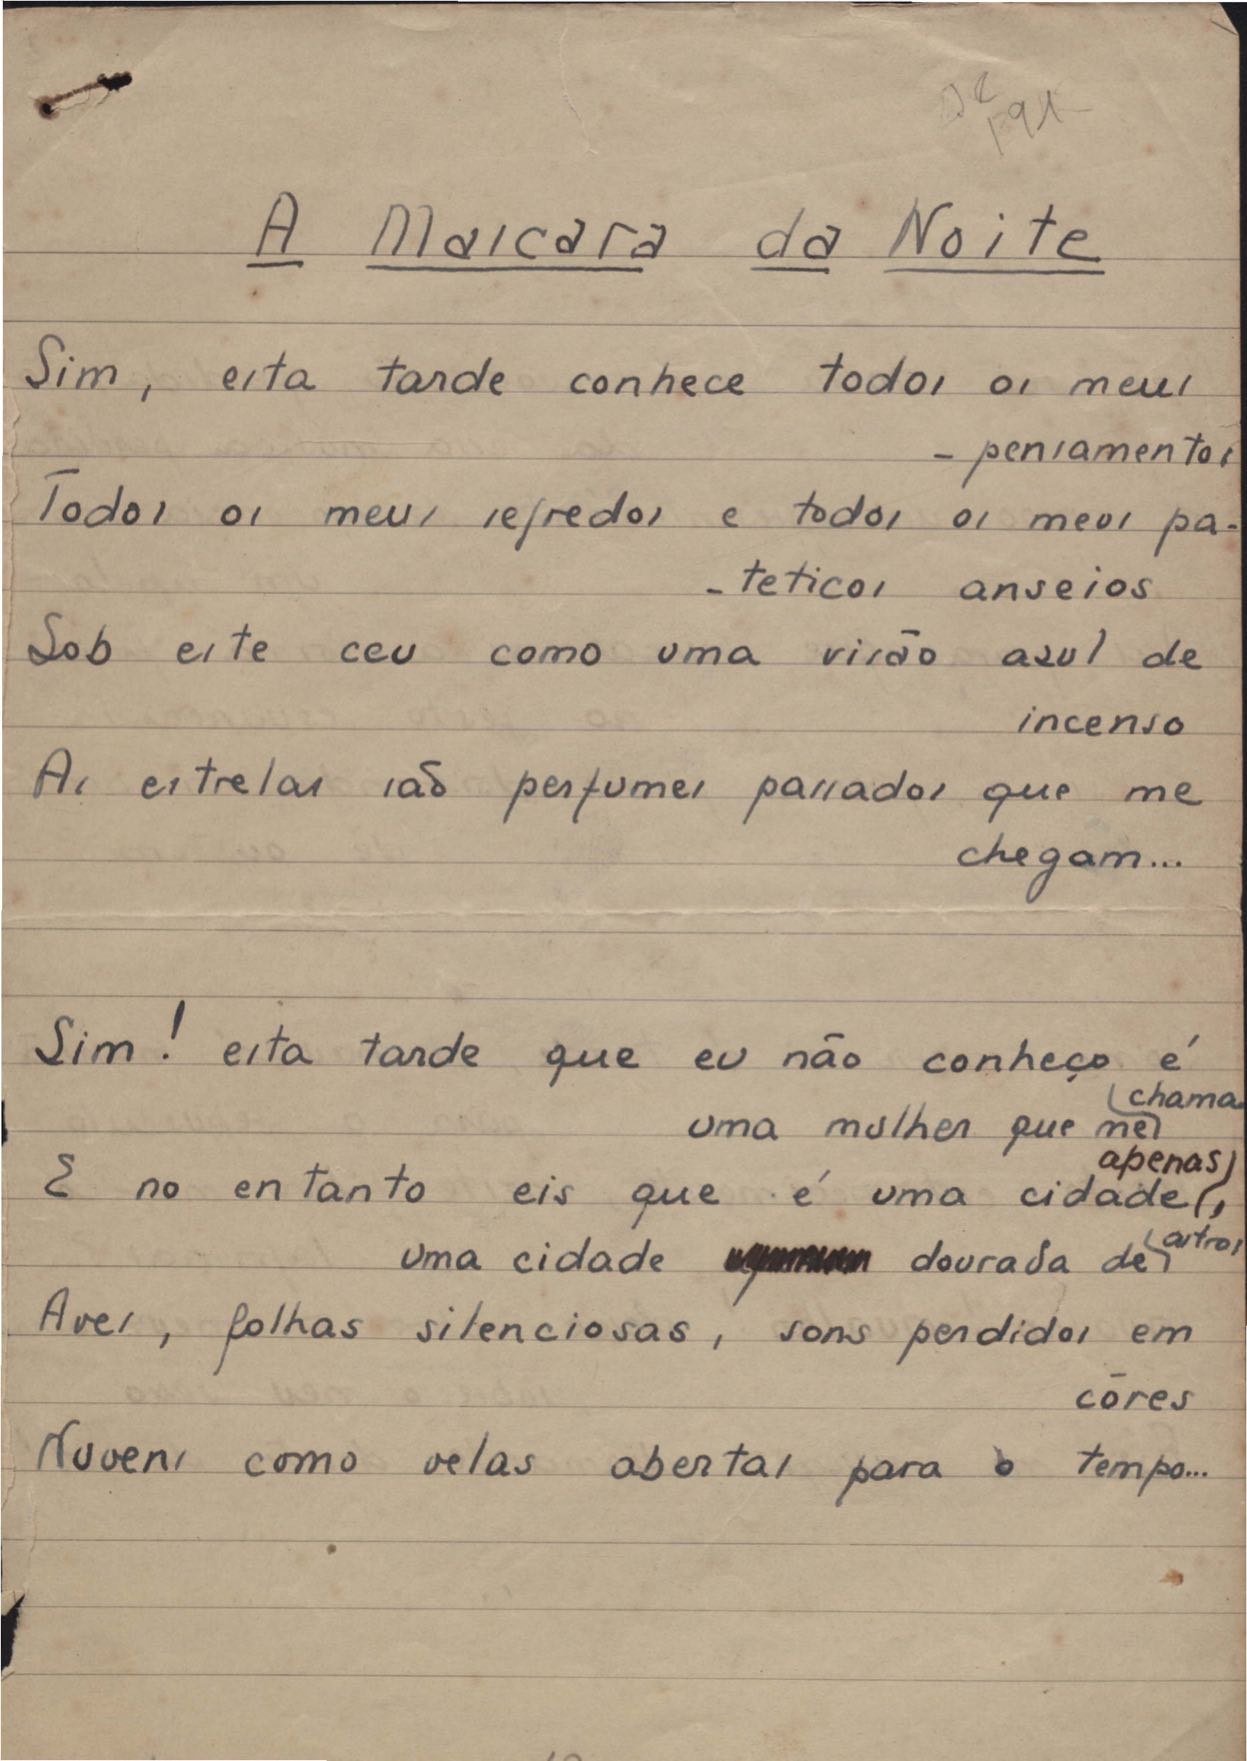 A Mascara da Noite
Sim, esta tarde conhece todos os meus
- pensamentos
Todos os meus segredos e todos os meus pa-
- teticos anseios
Sob este ceu como uma visão azul de
incenso
As estrelas são perfumes passados que me
chegam...
Sim! esta tarde que eu não conheço é
uma mulher que me chama
E no entanto eis que é uma cidade apenas,
uma cidade dourada de astros
Aves, folhas silenciosas, sons perdidos em
côres
Nuvens como velas abertas para o tempo...